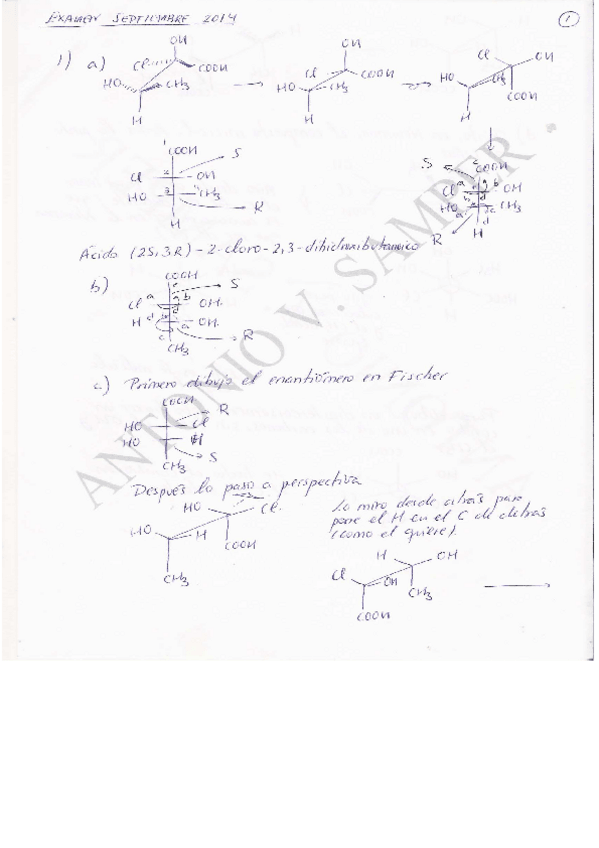 EXAMEN SEPTIEMBRE 2014
1
1) a)
OH
Cl
COOH
HO
CH3
H
OH
Cl
COOH
HO
CH3
H
Cl
OH
HO
CH3
COOH
H
COOH
S
Cl
OH
HO
CH3
R
H
S
COOH
Cl a b OH
HO CH3
R
H
Ácido (2S,3R)-2-cloro-2,3-dihidroxibutanoico
b)
COOH
S
Cl a b OH
H OH
R
CH3
c) Primero dibujo el enantiómero en Fischer
COOH
R
HO Cl
HO H
S
CH3
Después lo paso a perspectiva
HO Cl
HO H
COOH
CH3
Lo miro desde atrás para
poner el H en el C de detrás
(como el quiere).
H OH
Cl OH
CH3
COOH
ANTONIO V. SAMPER